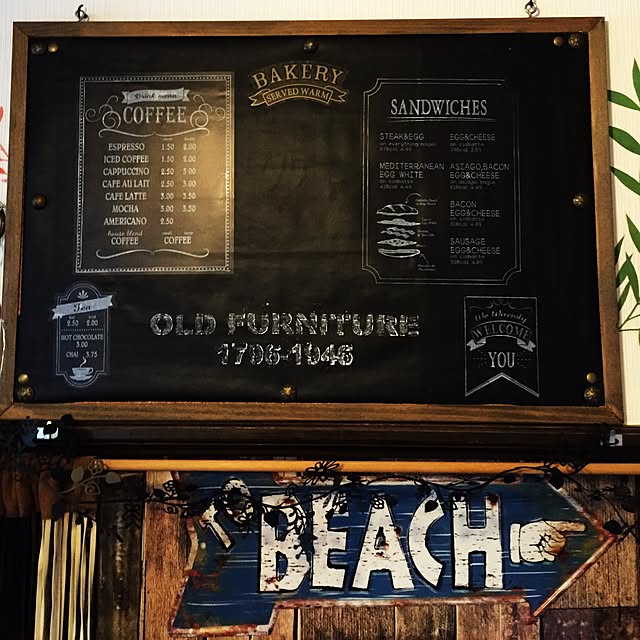 Drink menu
COFFEE
ESPRESSO 1.50 2.00
ICED COFFEE 1.50 2.00
CAPPUCCINO 2.50 3.00
CAFE AU LAIT 2.50 3.00
CAFE LATTE 3.00 3.50
MOCHA 3.00 3.50
AMERICANO 2.50
house blend
COFFEE COFFEE
BAKERY
SERVED WARM
SANDWICHES
STEAK&EGG
on everything bagel
MEDITERRANEAN
EGG WHITE
on ciabatta
EGG&CHEESE
on ciabatta
ASIAGO,BACON
EGG&CHEESE
on asiago bagel
BACON
EGG&CHEESE
on ciabatta
SAUSAGE
EGG&CHEESE
on ciabatta
Tea
2.50 2.00
HOT CHOCOLATE
3.00
CHAI 3.75
OLD FURNITURE
1796-1946
WELCOME
YOU
TO BEACH